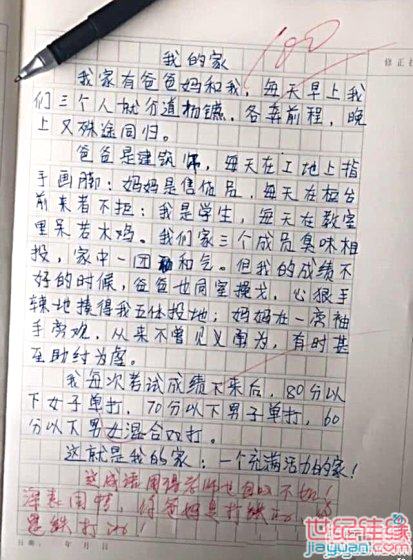 我的家
100
修正
我家有爸爸妈和我，每天早上我
们三个人就分道扬镳，各奔前程，晚
上又殊途同归。
爸爸是建筑师，每天在工地上指
手画脚；妈妈是售货员，每天在柜台
前来者不拒；我是学生，每天在教室
里呆若木鸡。我们家三个成员臭味相
投，家中一团和气。但我的成绩不
好的时候，爸爸也同室操戈，心狠手
辣地揍得我五体投地；妈妈在一旁袖
手旁观，从来不曾见义勇为，有时甚
至助纣为虐。
我每次考试成绩下来后，80分以
下女子单打，70分以下男子单打，60
分以下男女混合双打。
这就是我的家：一个充满活力的家！
这成语用得老师也自叹不如！
深表同情，你爸妈是打铁的，
日期： 年 月 日
世纪佳缘
jiayuan.com